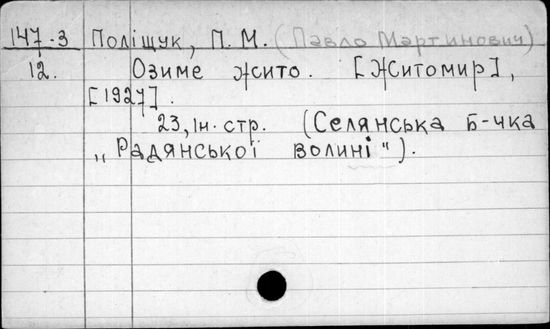 147-3 Поліщук, П. М. (Павло Мартинович)
12. Озиме жито. [Житомир],
[1927].
23, ін. стр. (Селянська Б-чка
„Радянської волині“).